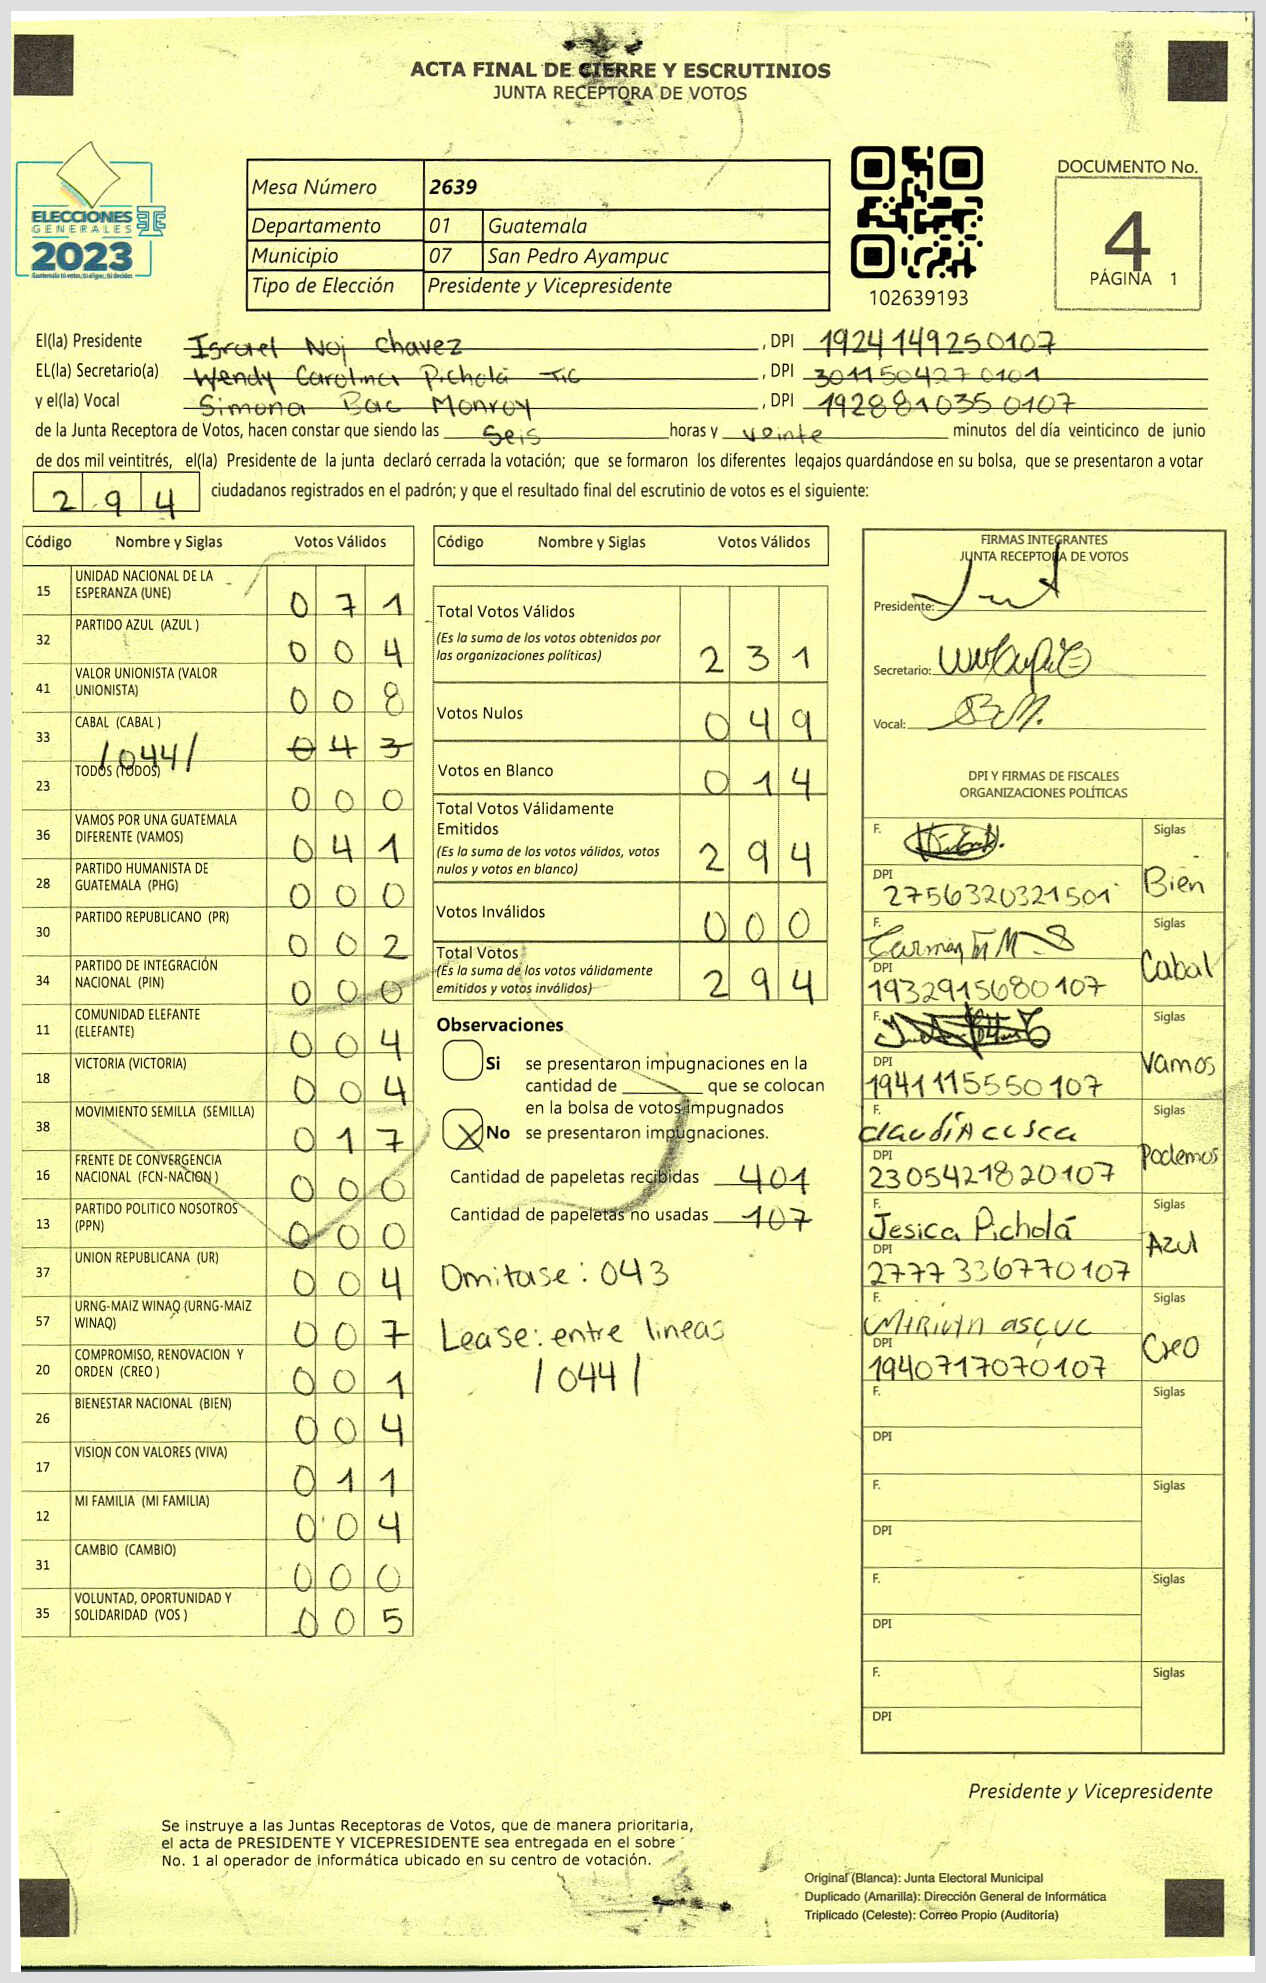 ACTA FINAL DE CIERRE Y ESCRUTINIOS
JUNTA RECEPTORA DE VOTOS
ELECCIONES
GENERALES
2023
Mesa Número 2639
Departamento 01 Guatemala
Municipio 07 San Pedro Ayampuc
Tipo de Elección Presidente y Vicepresidente
102639193
DOCUMENTO No.
4
PÁGINA 1
El(la) Presidente Israel Noj Chavez , DPI 1924149250107
EL(la) Secretario(a) Wendy Carolina Picholá Tic , DPI 3011504270101
y el(la) Vocal Simona Bac Monroy , DPI 1928810350107
de la Junta Receptora de Votos, hacen constar que siendo las seis horas y veinte minutos del día veinticinco de junio
de dos mil veintitrés, el(la) Presidente de la junta declaró cerrada la votación; que se formaron los diferentes legajos guardándose en su bolsa, que se presentaron a votar
294 ciudadanos registrados en el padrón; y que el resultado final del escrutinio de votos es el siguiente:
Código Nombre y Siglas Votos Válidos
15 UNIDAD NACIONAL DE LA ESPERANZA (UNE) 071
32 PARTIDO AZUL (AZUL ) 004
41 VALOR UNIONISTA (VALOR UNIONISTA) 008
33 CABAL (CABAL ) /044/ 043
23 TODOS (TODOS) 000
36 VAMOS POR UNA GUATEMALA DIFERENTE (VAMOS) 041
28 PARTIDO HUMANISTA DE GUATEMALA (PHG) 000
30 PARTIDO REPUBLICANO (PR) 002
34 PARTIDO DE INTEGRACIÓN NACIONAL (PIN) 000
11 COMUNIDAD ELEFANTE (ELEFANTE) 004
18 VICTORIA (VICTORIA) 004
38 MOVIMIENTO SEMILLA (SEMILLA) 017
16 FRENTE DE CONVERGENCIA NACIONAL (FCN-NACION ) 000
13 PARTIDO POLITICO NOSOTROS (PPN) 000
37 UNION REPUBLICANA (UR) 004
57 URNG-MAIZ WINAQ (URNG-MAIZ WINAQ) 007
20 COMPROMISO, RENOVACION Y ORDEN (CREO ) 001
26 BIENESTAR NACIONAL (BIEN) 004
17 VISION CON VALORES (VIVA) 011
12 MI FAMILIA (MI FAMILIA) 004
31 CAMBIO (CAMBIO) 000
35 VOLUNTAD, OPORTUNIDAD Y SOLIDARIDAD (VOS ) 005
Código Nombre y Siglas Votos Válidos
Total Votos Válidos 231
(Es la suma de los votos obtenidos por
las organizaciones políticas)
Votos Nulos 049
Votos en Blanco 014
Total Votos Válidamente
Emitidos 294
(Es la suma de los votos válidos, votos
nulos y votos en blanco)
Votos Inválidos 000
Total Votos 294
(Es la suma de los votos válidamente
emitidos y votos inválidos)
Observaciones
Si se presentaron impugnaciones en la
cantidad de ________ que se colocan
en la bolsa de votos impugnados
X No se presentaron impugnaciones.
Cantidad de papeletas recibidas 401
Cantidad de papeletas no usadas 107
Omitase: 043
Lease: entre lineas
/044/
FIRMAS INTEGRANTES
JUNTA RECEPTORA DE VOTOS
Presidente:
Secretario:
Vocal:
DPI Y FIRMAS DE FISCALES
ORGANIZACIONES POLÍTICAS
F. Siglas
DPI 2756320321501 Bien
F. Siglas
DPI 1932915680107 Cabal
F. Siglas
DPI 1941115550107 Vamos
F. Siglas
DPI 2305421820107 Podemos
F. Jesica Picholá Siglas
DPI 2777336770107 Azul
F. Siglas
DPI 1940717070107 Creo
F. Siglas
DPI
F. Siglas
DPI
F. Siglas
DPI
F. Siglas
DPI
Presidente y Vicepresidente
Se instruye a las Juntas Receptoras de Votos, que de manera prioritaria,
el acta de PRESIDENTE Y VICEPRESIDENTE sea entregada en el sobre
No. 1 al operador de informática ubicado en su centro de votación.
Original (Blanca): Junta Electoral Municipal
Duplicado (Amarilla): Dirección General de Informática
Triplicado (Celeste): Correo Propio (Auditoría)